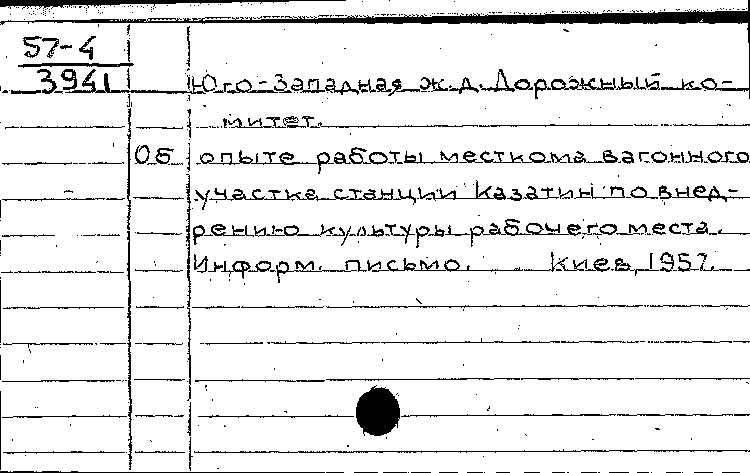 57-4
3941
Юго-Западная ж.д. Дорожный ко-
митет.
Об опыте работы месткома вагонного
участка станции Казатин по внед-
рению культуры рабочего места.
Информ. письмо. Киев, 1957.